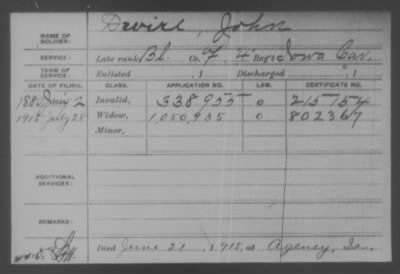 NAME OF SOLDIER: Devirl, John
SERVICE: Late rank, Bl. Co. F, 4" Reg't Iowa Cav.
TERM OF SERVICE: Enlisted , 1 Discharged , 1
DATE OF FILING. CLASS. APPLICATION NO. LAW. CERTIFICATE NO.
188 July 2 Invalid, 338955 0 215154
1915 July 28 Widow, 1,050,935 0 802367
Minor,
ADDITIONAL SERVICES:
REMARKS:
Died June 21, 1915, at Agency, Ia.